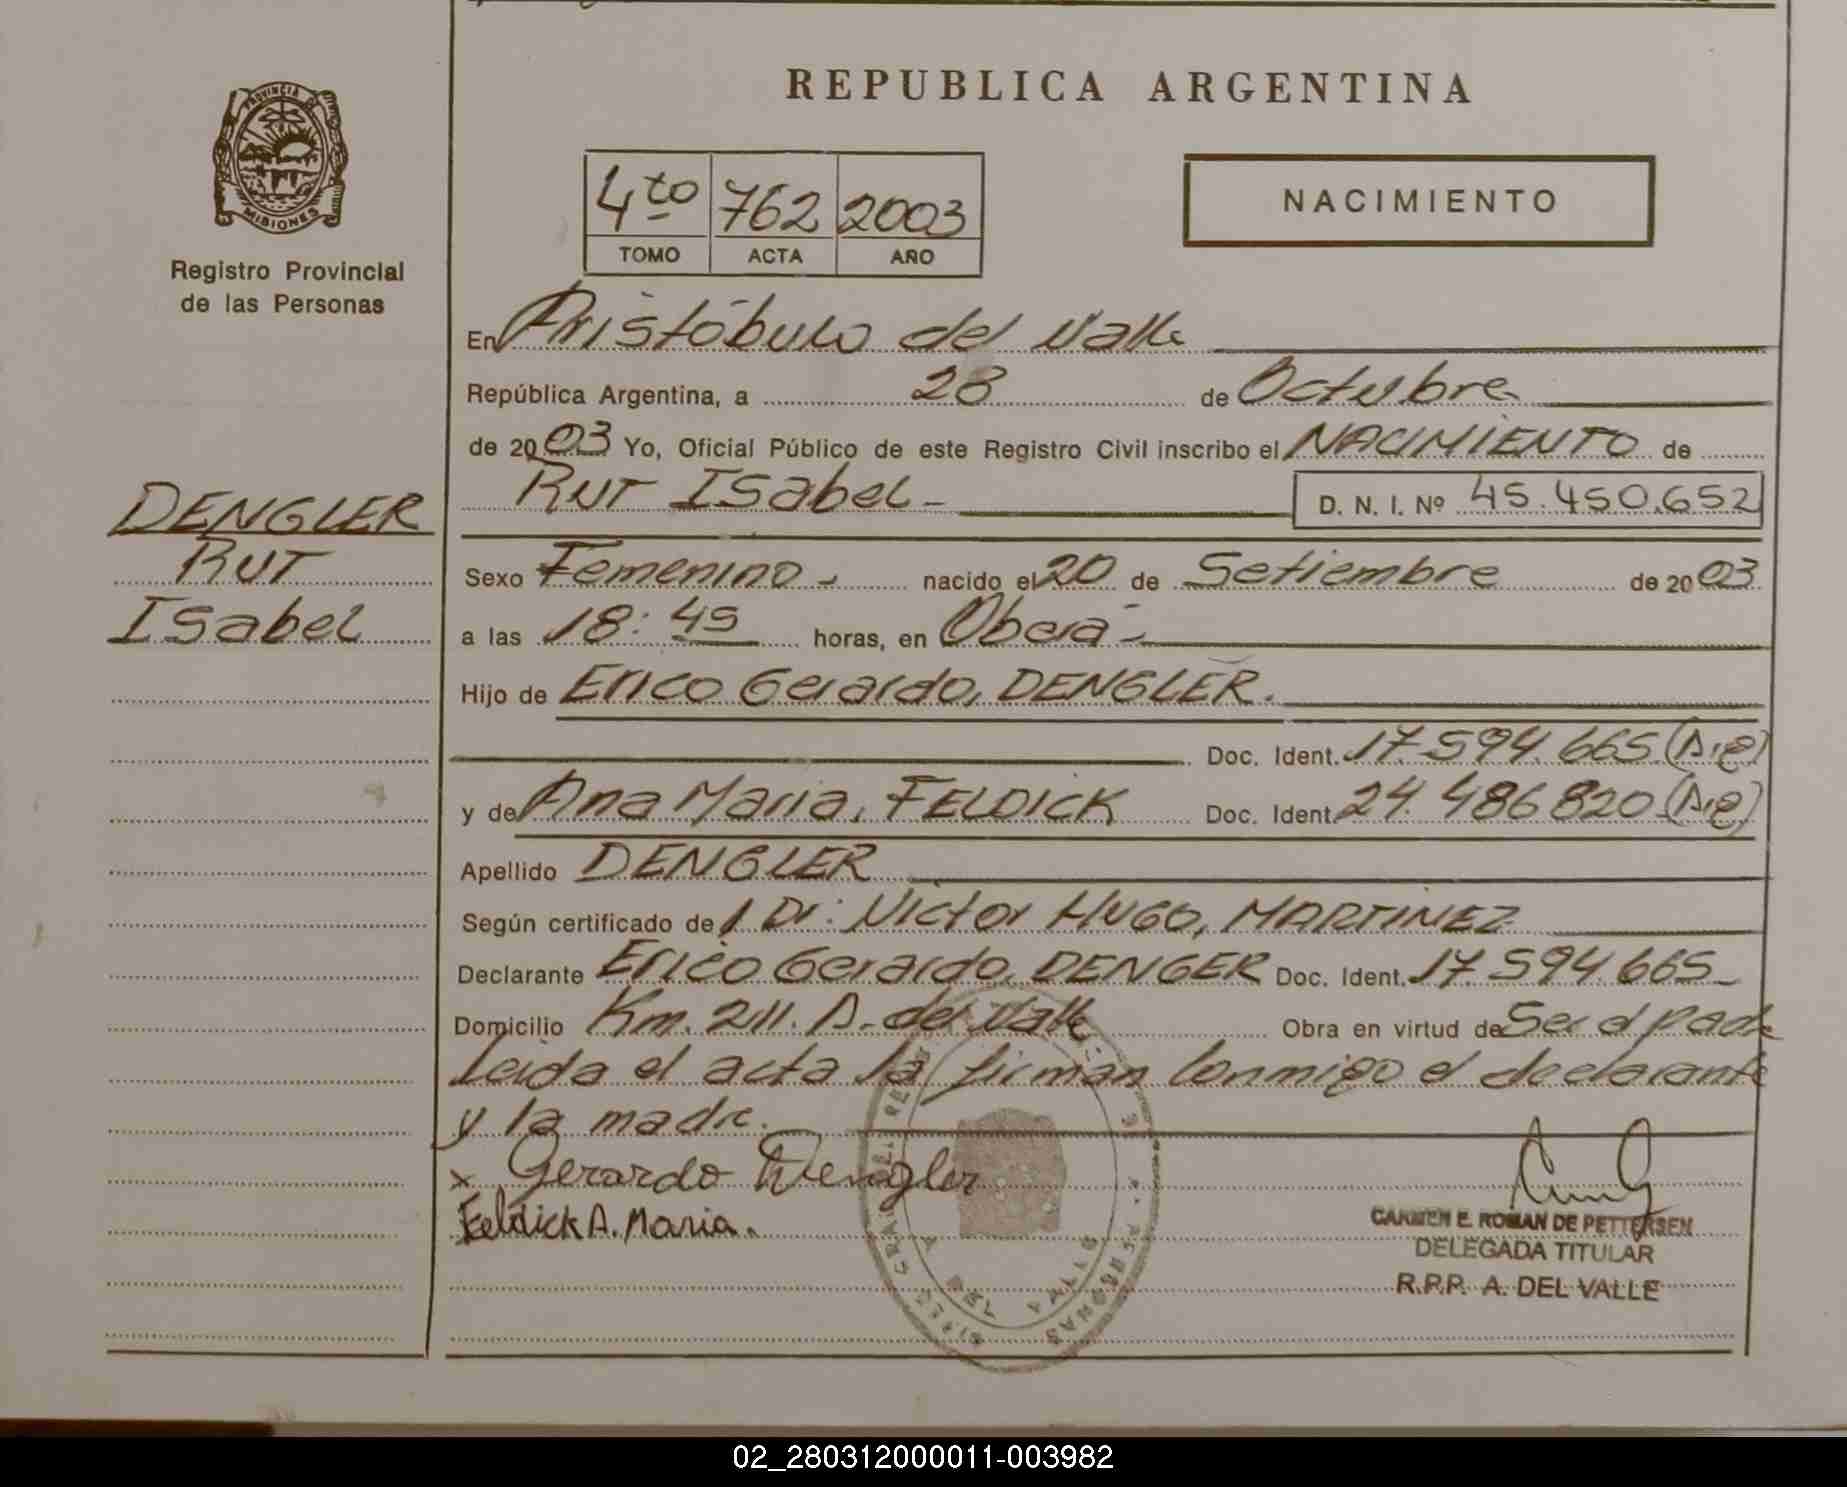 REPUBLICA ARGENTINA
PROVINCIA D
MISIONES
Registro Provincial
de las Personas
4to 762 2003
TOMO ACTA AÑO
NACIMIENTO
En Aristóbulo del Valle
República Argentina, a 28 de Octubre
de 2003 Yo, Oficial Público de este Registro Civil inscribo el NACIMIENTO de
Rut Isabel - D. N. I. Nº 45.450.652
DENGLER
RUT
Isabel
Sexo Femenino - nacido el 20 de Setiembre de 2003
a las 18:45 horas, en Oberá -
Hijo de Erico Gerardo, DENGLER.
Doc. Ident. 17.594.665 (A.e)
y de Ana Maria, FELDICK Doc. Ident. 24.486820 (A.e)
Apellido DENGLER
Según certificado de / Dr: Victor HUGO, MARTINEZ
Declarante Erico Gerardo, DENGER Doc. Ident. 17.594.665-
Domicilio Km. 211. A. del Valle Obra en virtud de Ser el padre
Leida el acta la firman conmigo el declarante
y la madre.
x Gerardo Dengler
Feldick A. Maria.
CARMEN E. ROMAN DE PETTERSEN
DELEGADA TITULAR
R.P.P. A. DEL VALLE
02_280312000011-003982